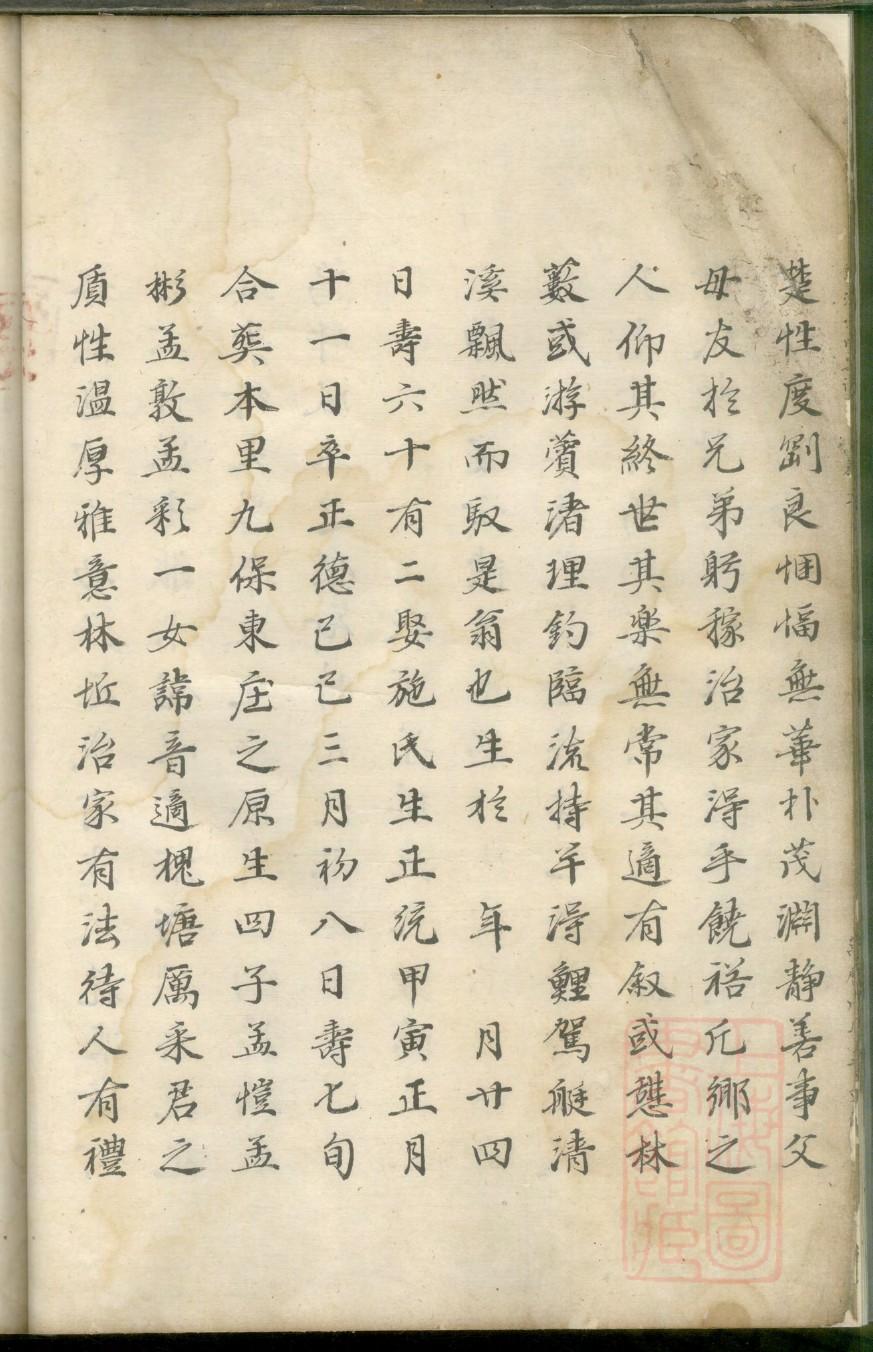 楚性度劉良悃愊無華朴茂淵静善事父
母友於兄弟躬稼治家淂乎饒裕凢鄉之
人仰其終世其樂無常其適有叙或憇林
藪或游薲渚理釣臨流持竿淂鯉駕艇清
溪飄然而馭是翁也生於　年　月廿四
日壽六十有二娶施氏生正統甲寅正月
十一日卒正德己巳三月初八日壽七旬
合葬本里九保東庄之原生四子孟愷孟
彬孟敦孟彩一女諱音適槐塘厲采君之
質性温厚雅意林坵治家有法待人有禮